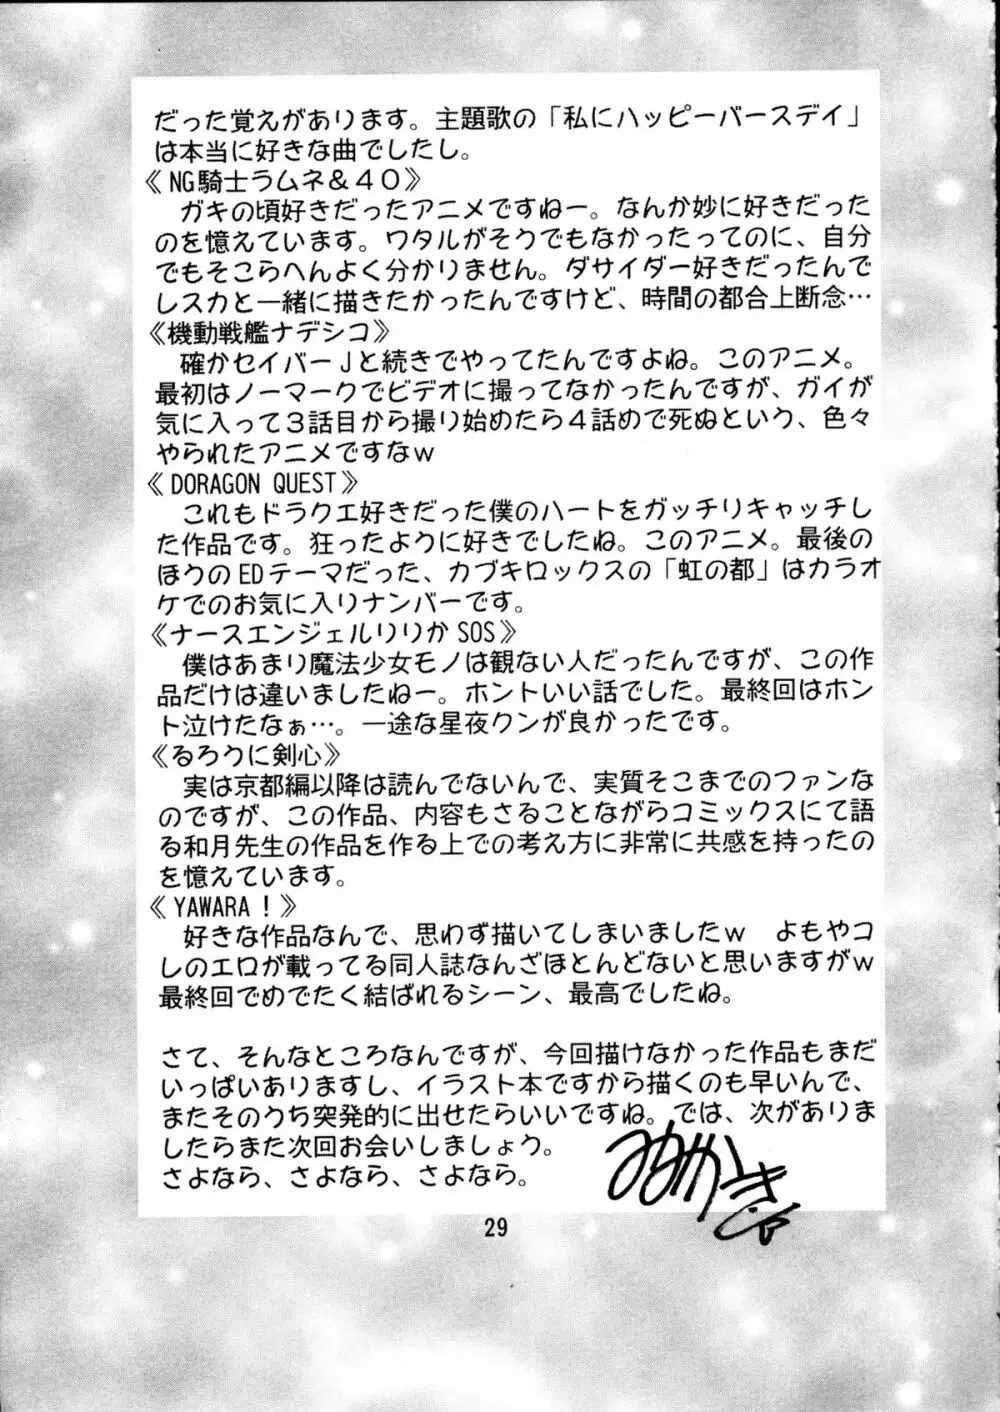 だった覚えがあります。主題歌の「私にハッピーバースデイ」
は本当に好きな曲でしたし。
《NG騎士ラムネ&40》
ガキの頃好きだったアニメですねー。なんか妙に好きだった
のを憶えています。ワタルがそうでもなかったってのに、自分
でもそこらへんよく分かりません。ダサイダー好きだったんで
レスカと一緒に描きたかったんですけど、時間の都合上断念…
《機動戦艦ナデシコ》
確かセイバーJと続きでやってたんですよね。このアニメ。
最初はノーマークでビデオに撮ってなかったんですが、ガイが
気に入って3話目から撮り始めたら4話めで死ぬという、色々
やられたアニメですなw
《DORAGON QUEST》
これもドラクエ好きだった僕のハートをガッチりキャッチし
た作品です。狂ったように好きでしたね。このアニメ。最後の
ほうのEDテーマだった、カブキロックスの「虹の都」はカラオ
ケでのお気に入りナンバーです。
《ナースエンジェルりりかSOS》
僕はあまり魔法少女モノは観ない人だったんですが、この作
品だけは違いましたねー。ホントいい話でした。最終回はホン
ト泣けたなぁ…。一途な星夜クンが良かったです。
《るろうに剣心》
実は京都編以降は読んでないんで、実質そこまでのファンな
のですが、この作品、内容もさることながらコミックスにて語
る和月先生の作品を作る上での考え方に非常に共感を持ったの
を憶えています。
《YAWARA!》
好きな作品なんで、思わず描いてしまいましたw　よもやコ
レのエロが載ってる同人誌なんざほとんどないと思いますがw
最終回でめでたく結ばれるシーン、最高でしたね。
さて、そんなところなんですが、今回描けなかった作品もまだ
いっぱいありますし、イラスト本ですから描くのも早いんで、
またそのうち突発的に出せたらいいですね。では、次がありま
したらまた次回お会いしましょう。
さよなら、さよなら、さよなら。
29